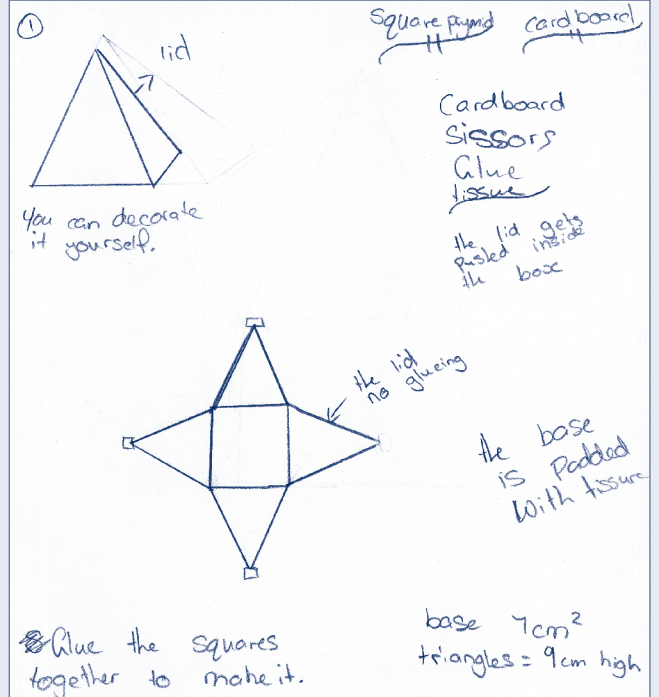 ①
Square prymid
cardboard
lid
Cardboard
Sissors
Glue
tissue
You can decorate
it yourself.
the lid gets
pusled inside
the box
the lid
no glueing
the base
is Padded
With tissure
Glue the squares
together to make it.
base 7cm²
triangles = 9cm high